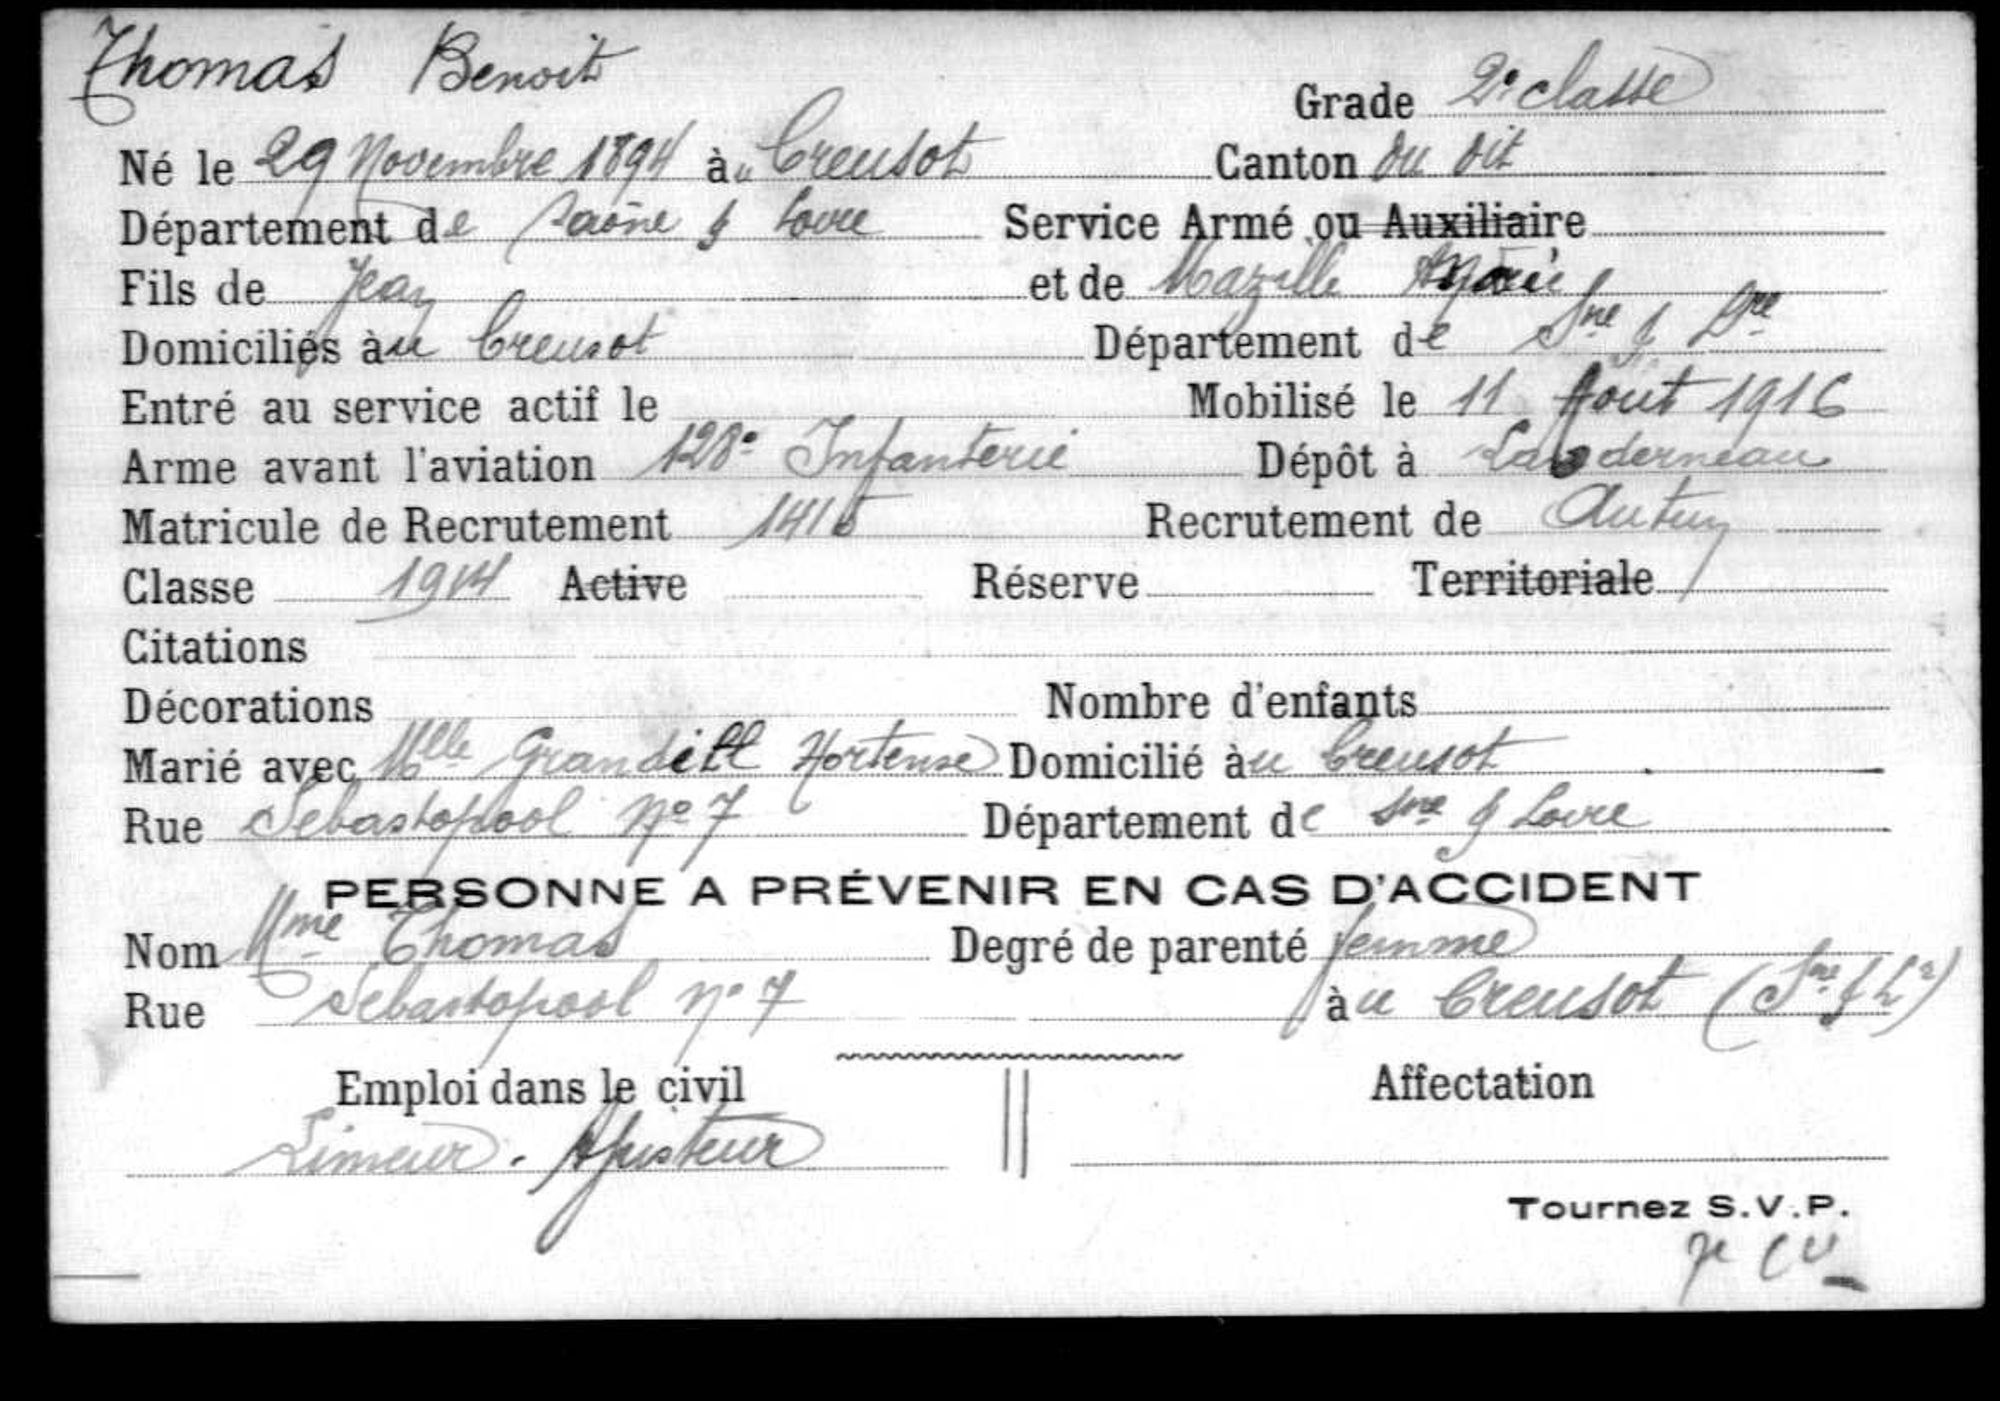 Thomas Benoit
Grade 2e classe
Né le 29 Novembre 1894 à u Creusot Canton du dit
Département de Saône & Loire Service Armé ou Auxiliaire
Fils de Jean et de Mazille Marie
Domiciliés à u Creusot Département de Sne & Lre
Entré au service actif le Mobilisé le 11 Aout 1916
Arme avant l'aviation 128e Infanterie Dépôt à Landerneau
Matricule de Recrutement 1415 Recrutement de Autun
Classe 1914 Active Réserve Territoriale
Citations
Décorations Nombre d'enfants
Marié avec Mlle Hortense Domicilié à u Creusot
Rue Sebastopool No 7 Département de Sne & Loire
PERSONNE A PRÉVENIR EN CAS D'ACCIDENT
Nom Mme Thomas Degré de parenté femme
Rue Sebastopool No 7 à u Creusot (Sne & Lre)
Emploi dans le civil Affectation
Limeur. Ajusteur
Tournez S.V.P.